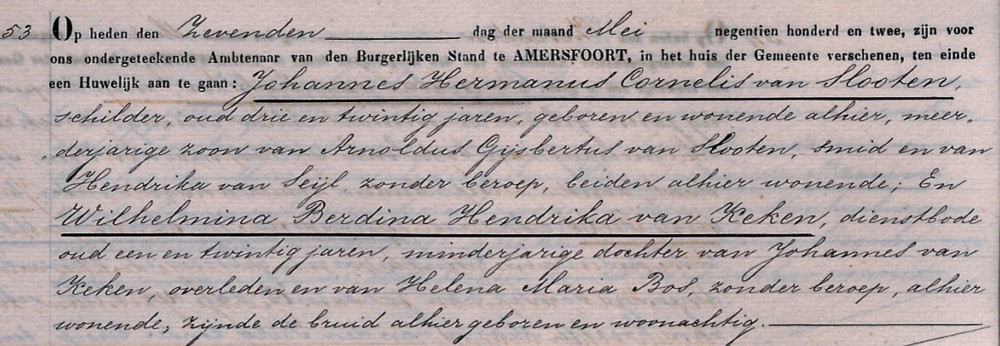 53 Op heden den Zevenden dag der maand Mei negentien honderd en twee, zijn voor
ons ondergeteekende Ambtenaar van den Burgerlijken Stand te AMERSFOORT, in het huis der Gemeente verschenen, ten einde
een Huwelijk aan te gaan: Johannes Hermanus Cornelis van Slooten,
schilder, oud drie en twintig jaren, geboren en wonende alhier, meer-
derjarige zoon van Arnoldus Gijsbertus van Slooten, smid en van
Hendrika van Seijl, zonder beroep, beiden alhier wonende; En
Wilhelmina Berdina Hendrika van Keken, dienstbode
oud een en twintig jaren, minderjarige dochter van Johannes van
Keken, overleden en van Helena Maria Bos, zonder beroep, alhier
wonende, zijnde de bruid alhier geboren en woonachtig.